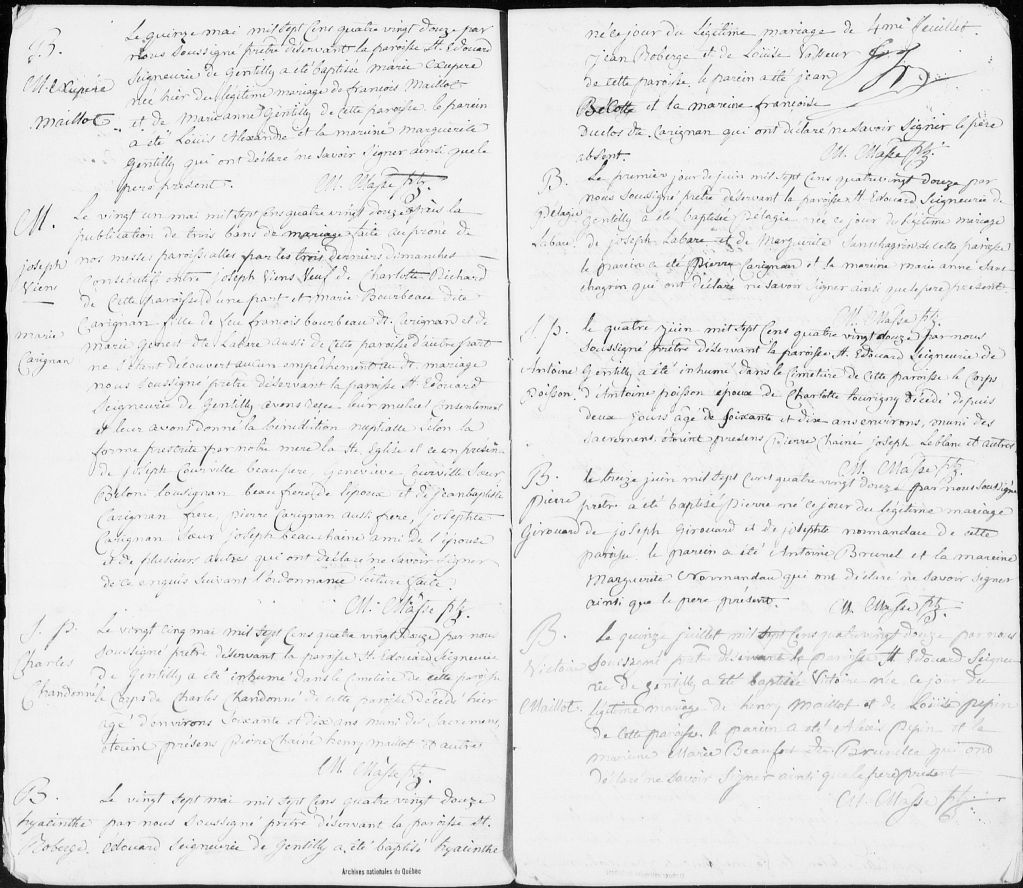 B.
M. Exupere
Maillot
Le quinze mai mil sept Cens quatre vingt douze par
nous soussigné prêtre déservant la paroisse St. Edouard
Seigneurie de Gentilly a été baptisée marie Exupere
née hier du légitime mariage de francois Maillot
et de Marieanne Gentilly de cette paroisse le parein
a été Louis Alexandre et la marine marguerite
Gentilly qui ont déclaré ne savoir signer ainsi que le
pere présent.
M. Masse ptr.
M.
joseph
Viens
marie
Carignan
Le vingt un mai mil sept Cens quatre vingt douze après la
publication de trois bans de mariage faite au prone de
nos messes paroissialles par les trois derniers dimanches
Consecutif entre joseph Viens Veuf de Charlotte Richard
de Cette paroisse d'une part et marie Bourbeau dite
Carignan fille de feu francois bourbeau dt. Carignan et de
marie genest dte Labare aussi de cette paroisse d'autre part
ne s'étant découvert aucun empêchement au dt. mariage
nous soussigné prêtre déservant la paroisse St. Edouard
Seigneurie de Gentilly avons leur mutuel Consentement
et leur avons donné la bénédiction nuptialle selon la
forme prescrite par notre mere la Ste. Eglise et ce en présence
de joseph Courville beaupere, geneviève Courville Sœur
Beloni Lousignan beaufrere de l'epoux et de jeanbaptiste
Carignan frere, pierre Carignan aussi frere, josephte
Carignan Sœur joseph beauchaine ami de l'épouse
et de plusieurs autres qui ont déclaré ne savoir signer
de ce enquis suivant l'ordonnance lecture faite
M. Masse ptr.
S. p.
Charles
Chandonné
Le vingt cinq mai mil sept Cens quatre vingt douze par nous
soussigné prêtre déservant la paroisse St. Edouard Seigneurie
de Gentilly a été inhumé dans le cimetiere de cette paroisse
le Corps de Charles Chandonné de cette paroisse décédé hier
agé d'environs soixante et dix ans muni des Sacremens
étoient présens pierre Chainé henry maillot et autres
M. Masse ptr.
B.
hyacinthe
Roberge.
Le vingt sept mai mil sept Cens quatre vingt douze
par nous soussigné prêtre déservant la paroisse St.
édouard Seigneurie de Gentilly a été baptisé hyacinthe
Archives nationales du Québec
né ce jour du légitime mariage de 4me feuillet.
jean Roberge et de Louise Vasseur
de cette paroisse. le parein a été jean
Belotte et la mareine françoise
Duclos dte Carignan qui ont déclaré ne savoir signer le pere
absent.
M. Masse ptr.
B.
Pélagie
Labare
Le premier jour de juin mil sept Cens quatre vingt douze par
nous soussigné prêtre déservant la paroisse St Edouard Seigneurie de
gentilly a été baptisée Pelagie née ce jour du légitime mariage
de joseph Labare et de Marguerite Sanschagrin de cette paroisse
le parein a été pierre Carignan et la marine marie anne Sans-
chagrin qui ont déclaré ne savoir signer ainsi que le pere présent
M. Masse ptr.
S. p.
Antoine
poisson
le quatre juin mil sept Cens quatre vingt douze par nous
soussigné prêtre déservant la paroisse St. Edouard Seigneurie de
Gentilly a été inhumé dans le Cimetiere de Cette paroisse le Corps
d'Antoine poisson époux de Charlotte tourigny décédé depuis
deux jours agé de soixante et dix ans environs, muni des
sacremens étoient présens pierre Chainé joseph Leblanc et autres
M. Masse ptr.
B.
pierre
Girouard
le treize juin mil sept Cens quatre vingt douze par nous soussigné
prêtre a été baptisé pierre né ce jour du légitime mariage
de joseph Girouard et de josephte normandau de cette
paroisse. le parein a été Antoine Brunel et la mareine
Marguerite Normandau qui ont déclaré ne savoir signer
ainsi que le pere présent.
M. Masse ptr.
B.
Victoire
Maillot.
Le quinze juillet mil sept Cens quatre vingt douze par nous
soussigné prêtre déservant la paroisse St. Edouard Seigneu-
rie de gentilly a été baptisée Vitoire née ce jour du
légitime mariage de henry Maillot et de Louise pepin
de Cette paroisse. le parein a été Alexis Pepin et la
mareine Marie Beaufort dte Brunelle qui ont
déclaré ne savoir signer ainsi que le pere présent
M. Masse ptr.